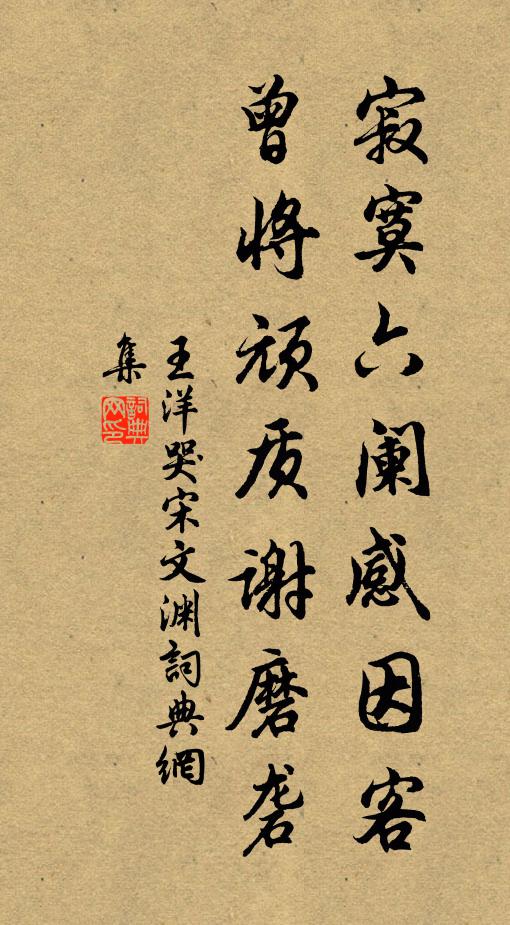 寂寞六阑感因客
曾将顽质谢磨砻
王洋哭宋文渊詞典網
集
詞典
网印